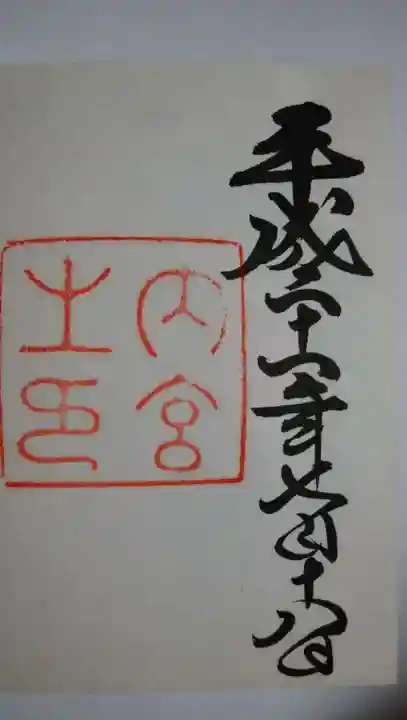 平成二十一年七月十八日
内宮之印